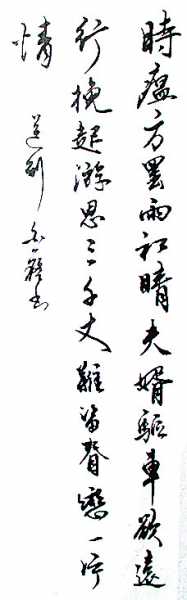 時瘟方罢雨初晴夫婿驅車欲遠
行挽起游思三千丈難留眷戀一片
情
送别